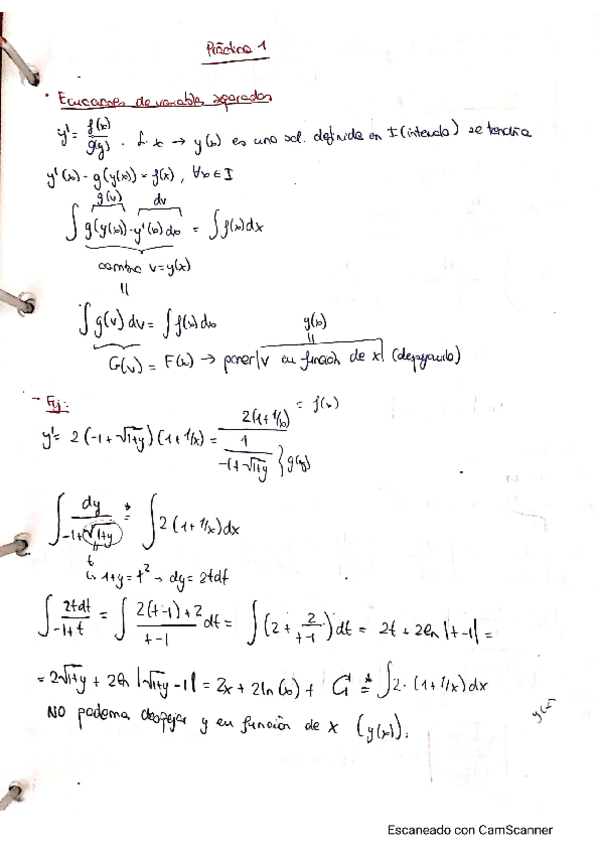 Práctica 1
· Ecuaciones de variables separadas
y' = f(x)/g(y) . x → y(x) es una sol. definida en I (intervalo) se tendría
y'(x) · g(y(x)) = f(x), ∀x ∈ I
g(v) dv
∫ g(y(x)) · y'(x) dx = ∫ f(x) dx
cambio v = y(x)
∫ g(v) dv = ∫ f(x) dx y(x)
G(v) = F(x) → poner v en función de x (despejando)
- Ej:
y' = 2(-1 + √1+y)(1 + 1/x) = 2(1 + 1/x) / (1 / (-1 + √1+y)) = f(x) } g(y)
∫ dy / (-1 + √1+y) *= ∫ 2(1 + 1/x) dx
t
↳ 1+y = t² → dy = 2tdt
∫ 2tdt / (-1+t) = ∫ (2(t-1)+2) / (t-1) dt = ∫ (2 + 2/(t-1)) dt = 2t + 2ln|t-1| =
= 2√1+y + 2ln|√1+y - 1| = 2x + 2ln(x) + C *= ∫ 2·(1 + 1/x) dx
NO podemos despejar y en función de x (y(x)). y(x)
Escaneado con CamScanner